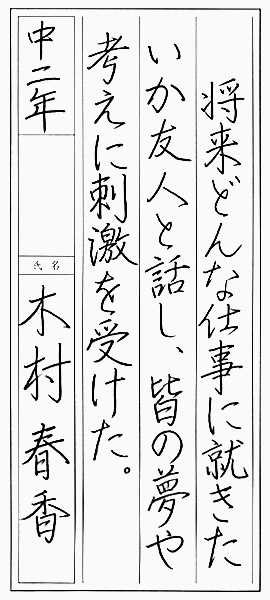 将来どんな仕事に就きた
いか友人と話し、皆の夢や
考えに刺激を受けた。
中二年
氏名
木村春香